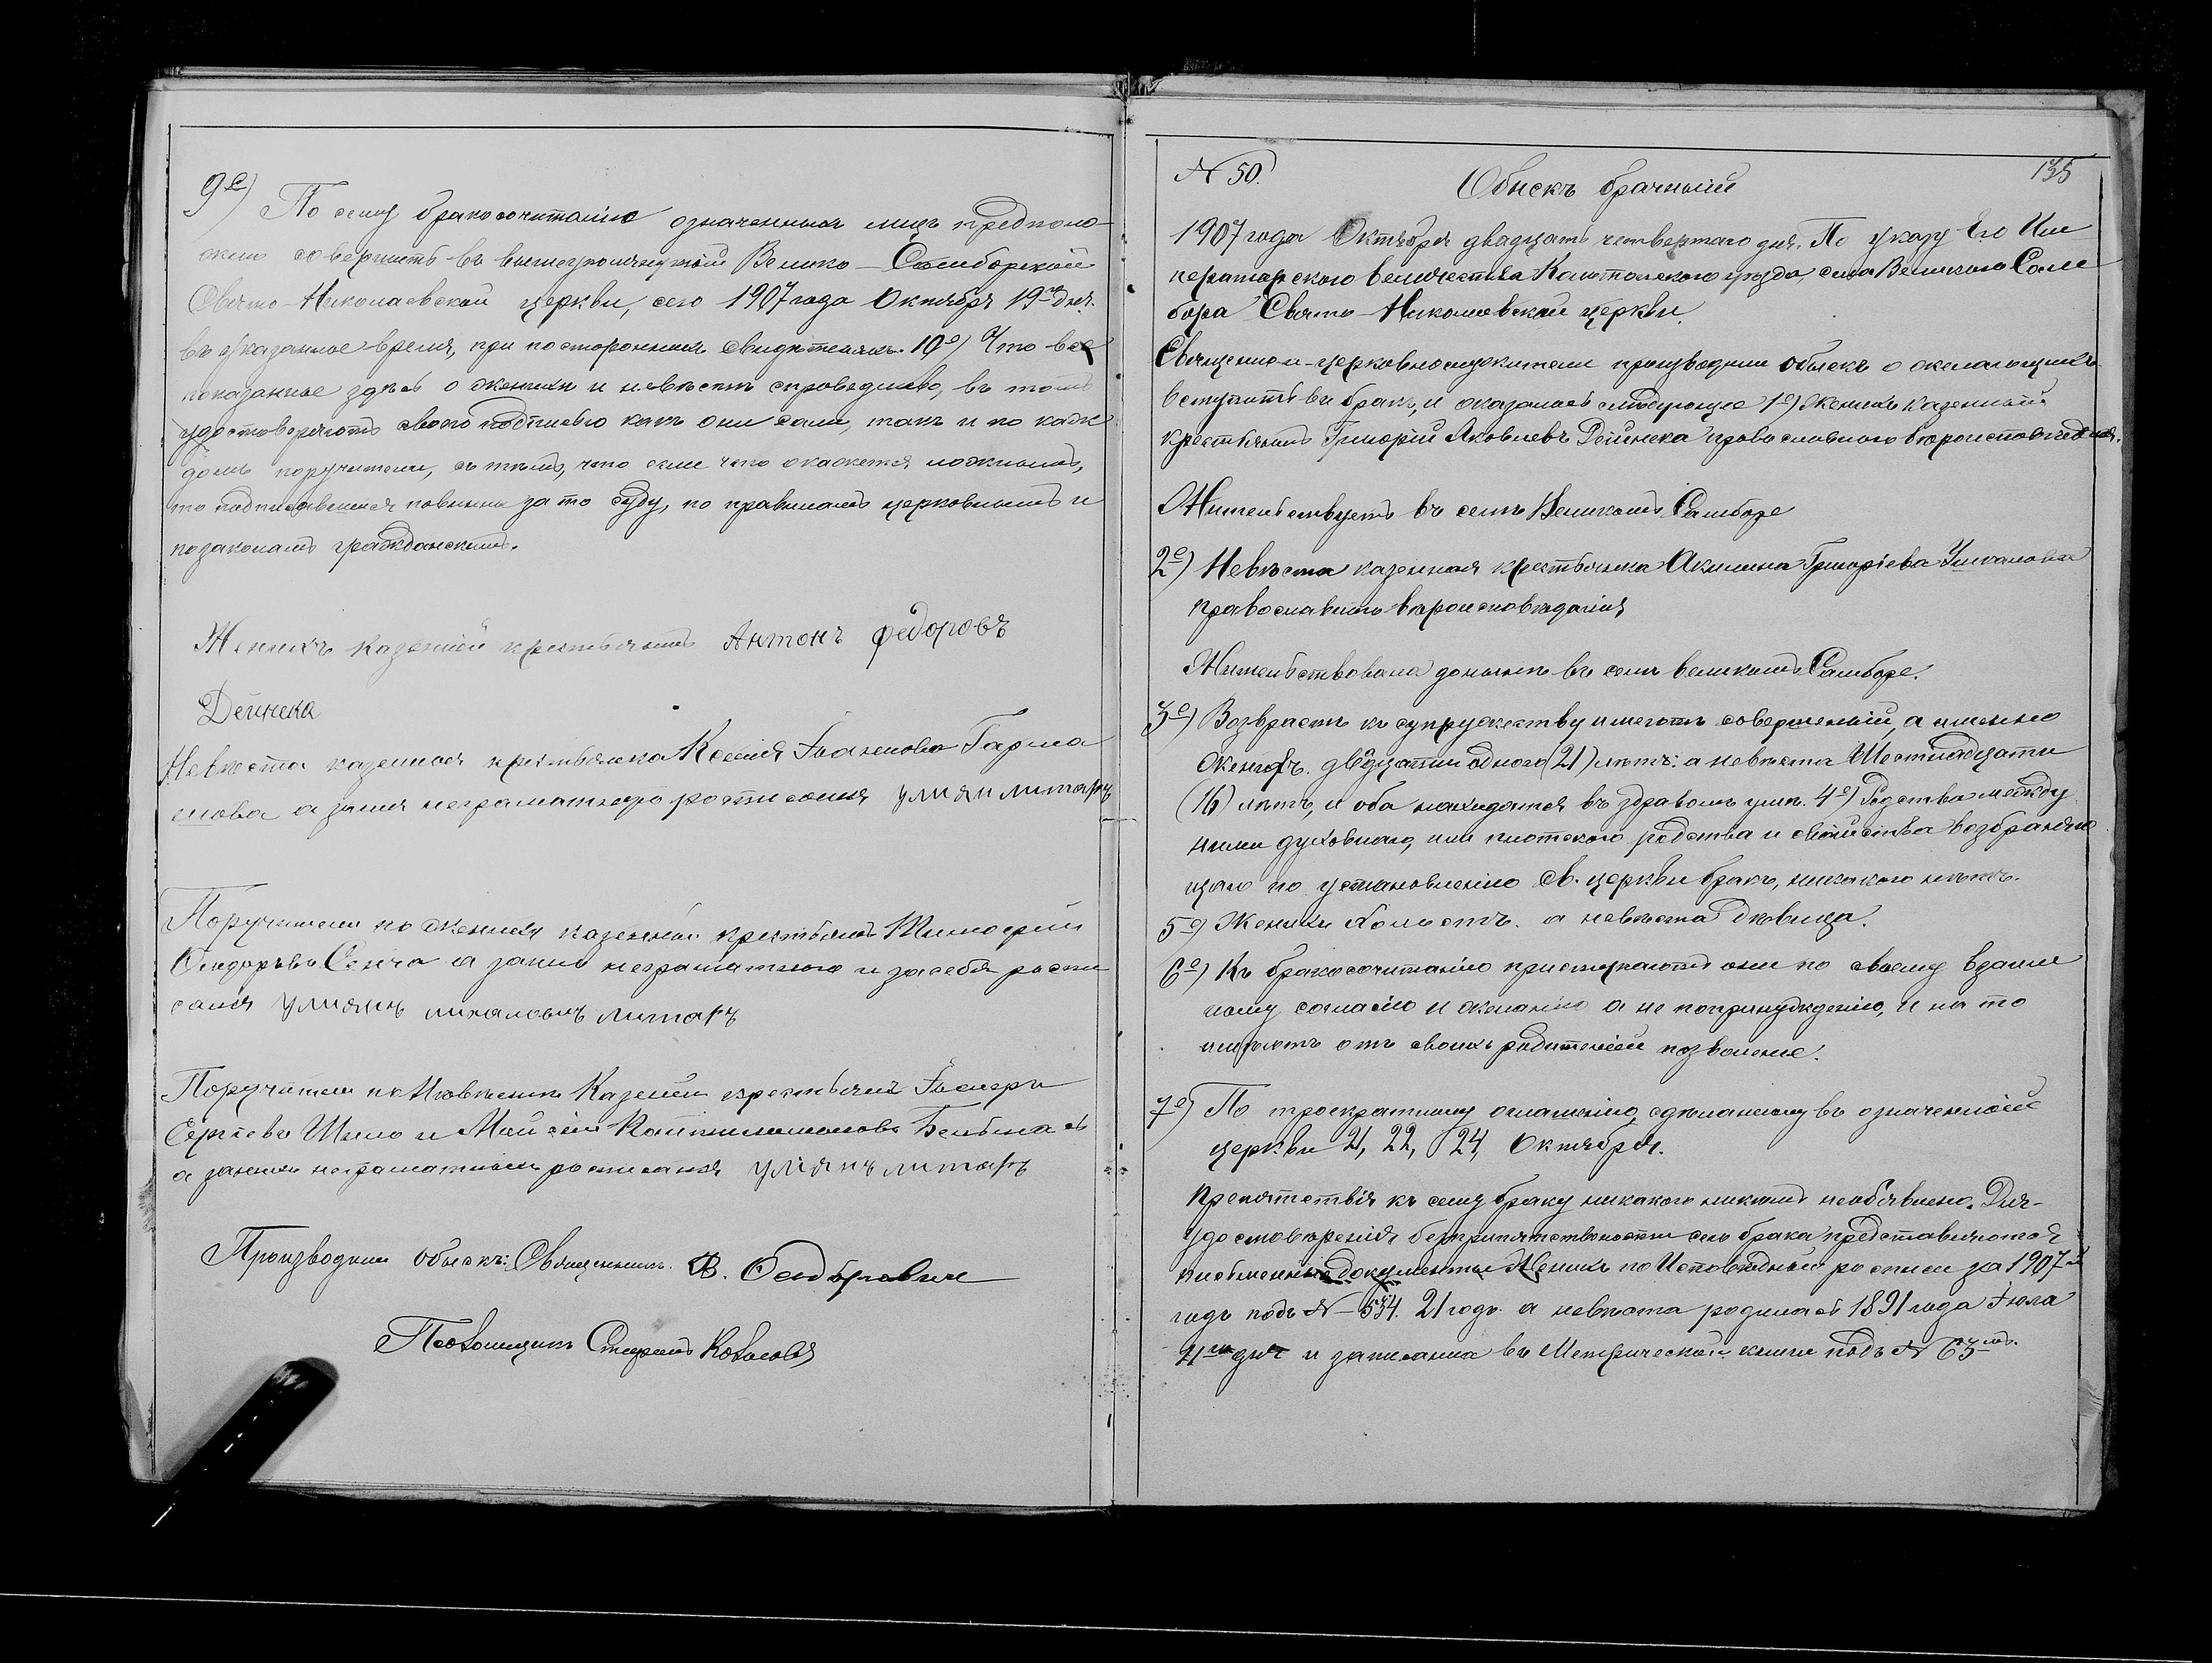 9е) По сему бракосочитанію означенныхъ лицъ предполо-
жено совершить въ вышеупомянутой Велико-Самборской
Свято-Николаевской церкви, сего 1907 года Октября 19го дня.
въ указанное время, при постороннихъ свидѣтеляхъ. 10е) Что все
показанное здѣсь о женихѣ и невѣстѣ справедливо, въ томъ
удостоверяютъ своею подписью какъ они сами, такъ и по каж
домъ поручители, съ тѣмъ, что если что окажется ложнымъ,
то подписавшіеся повинны за то суду, по правиламъ церковнымъ и
по законамъ гражданскимъ.
Женихъ казенній крестьянинъ Антонъ федоровъ
Дейнека
Невѣста казенная крестьянка Ксенія
а за нея неграматную росписался улиян литарь
Поручители по женихѣ казенній крестьянинъ Тимофій
Сенча а за него неграматного и за себя роспи
сался улиянъ михаловичъ литаръ
Поручители по Невѣстѣ Казенни крестьяне
Сергіевъ Шило и Моисей
а за нихъ неграматныхъ росписался улиянъ литаръ
Производили обыскъ: Священникъ В.
Псаломщикъ Стефанъ
N 50. Обыскъ брачный 135
1907 года Октября двадцать четвертаго дня. По указу Его Им
ператорского величества Конотопского уѣзда, села Великого Сам
бора Свято-Николаевской церкви.
Священно и-церковнослужители производили обыскъ о желающихъ
вступить въ бракъ, и оказалось слѣдующее 1е) Женихъ казенный
крестьянинъ Григорій Яковлевъ Дейнека православного вѣроисповѣданія.
Жительствуетъ въ селѣ Великомъ Самборе
2е) Невѣста казенная крестьянка Акилина Григоріева
православнго вѣроисповѣданія
Жительствовала донынѣ въ селѣ великомъ Самборе.
3е) Возврастъ къ супружеству имеютъ совершеній, а именно
Женихъ. двадцати одного (21) лѣтъ: а невѣста Шестнадцати
(16) лѣтъ, и оба находятся въ здравомъ умѣ. 4е) Родства между
ними духовнаго, или плотского родства и свойства возбраняю
щаго по установленію св. церкви бракъ, никакого нѣтъ.
5е) Женихъ холостъ. а невѣста дѣвица.
6е) Къ бракосочитанію приступаютъ они по своему взаим
ному согласію и желанію а не по принужденію, и на то
имѣютъ отъ своихъ родителей позволеніе.
7е) По троекратному оглашенію, сдѣланному въ означенной
церкви 21, 22, 24, Октября.
Препятствія къ сему браку никакого никемъ необъявлено. Для-
удостовѣренія безпрепятственности сего брака представляются
письменные документы Женихъ по Исповѣдной росписи за 1907й
годъ подъ N-534. 21 годъ. а невѣста родилась 1891 года Іюля
дня и записанна въ Метрической книги подъ N 63мъ.